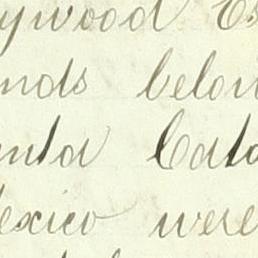 ywood Es
nds belon
nta Cata
exico were